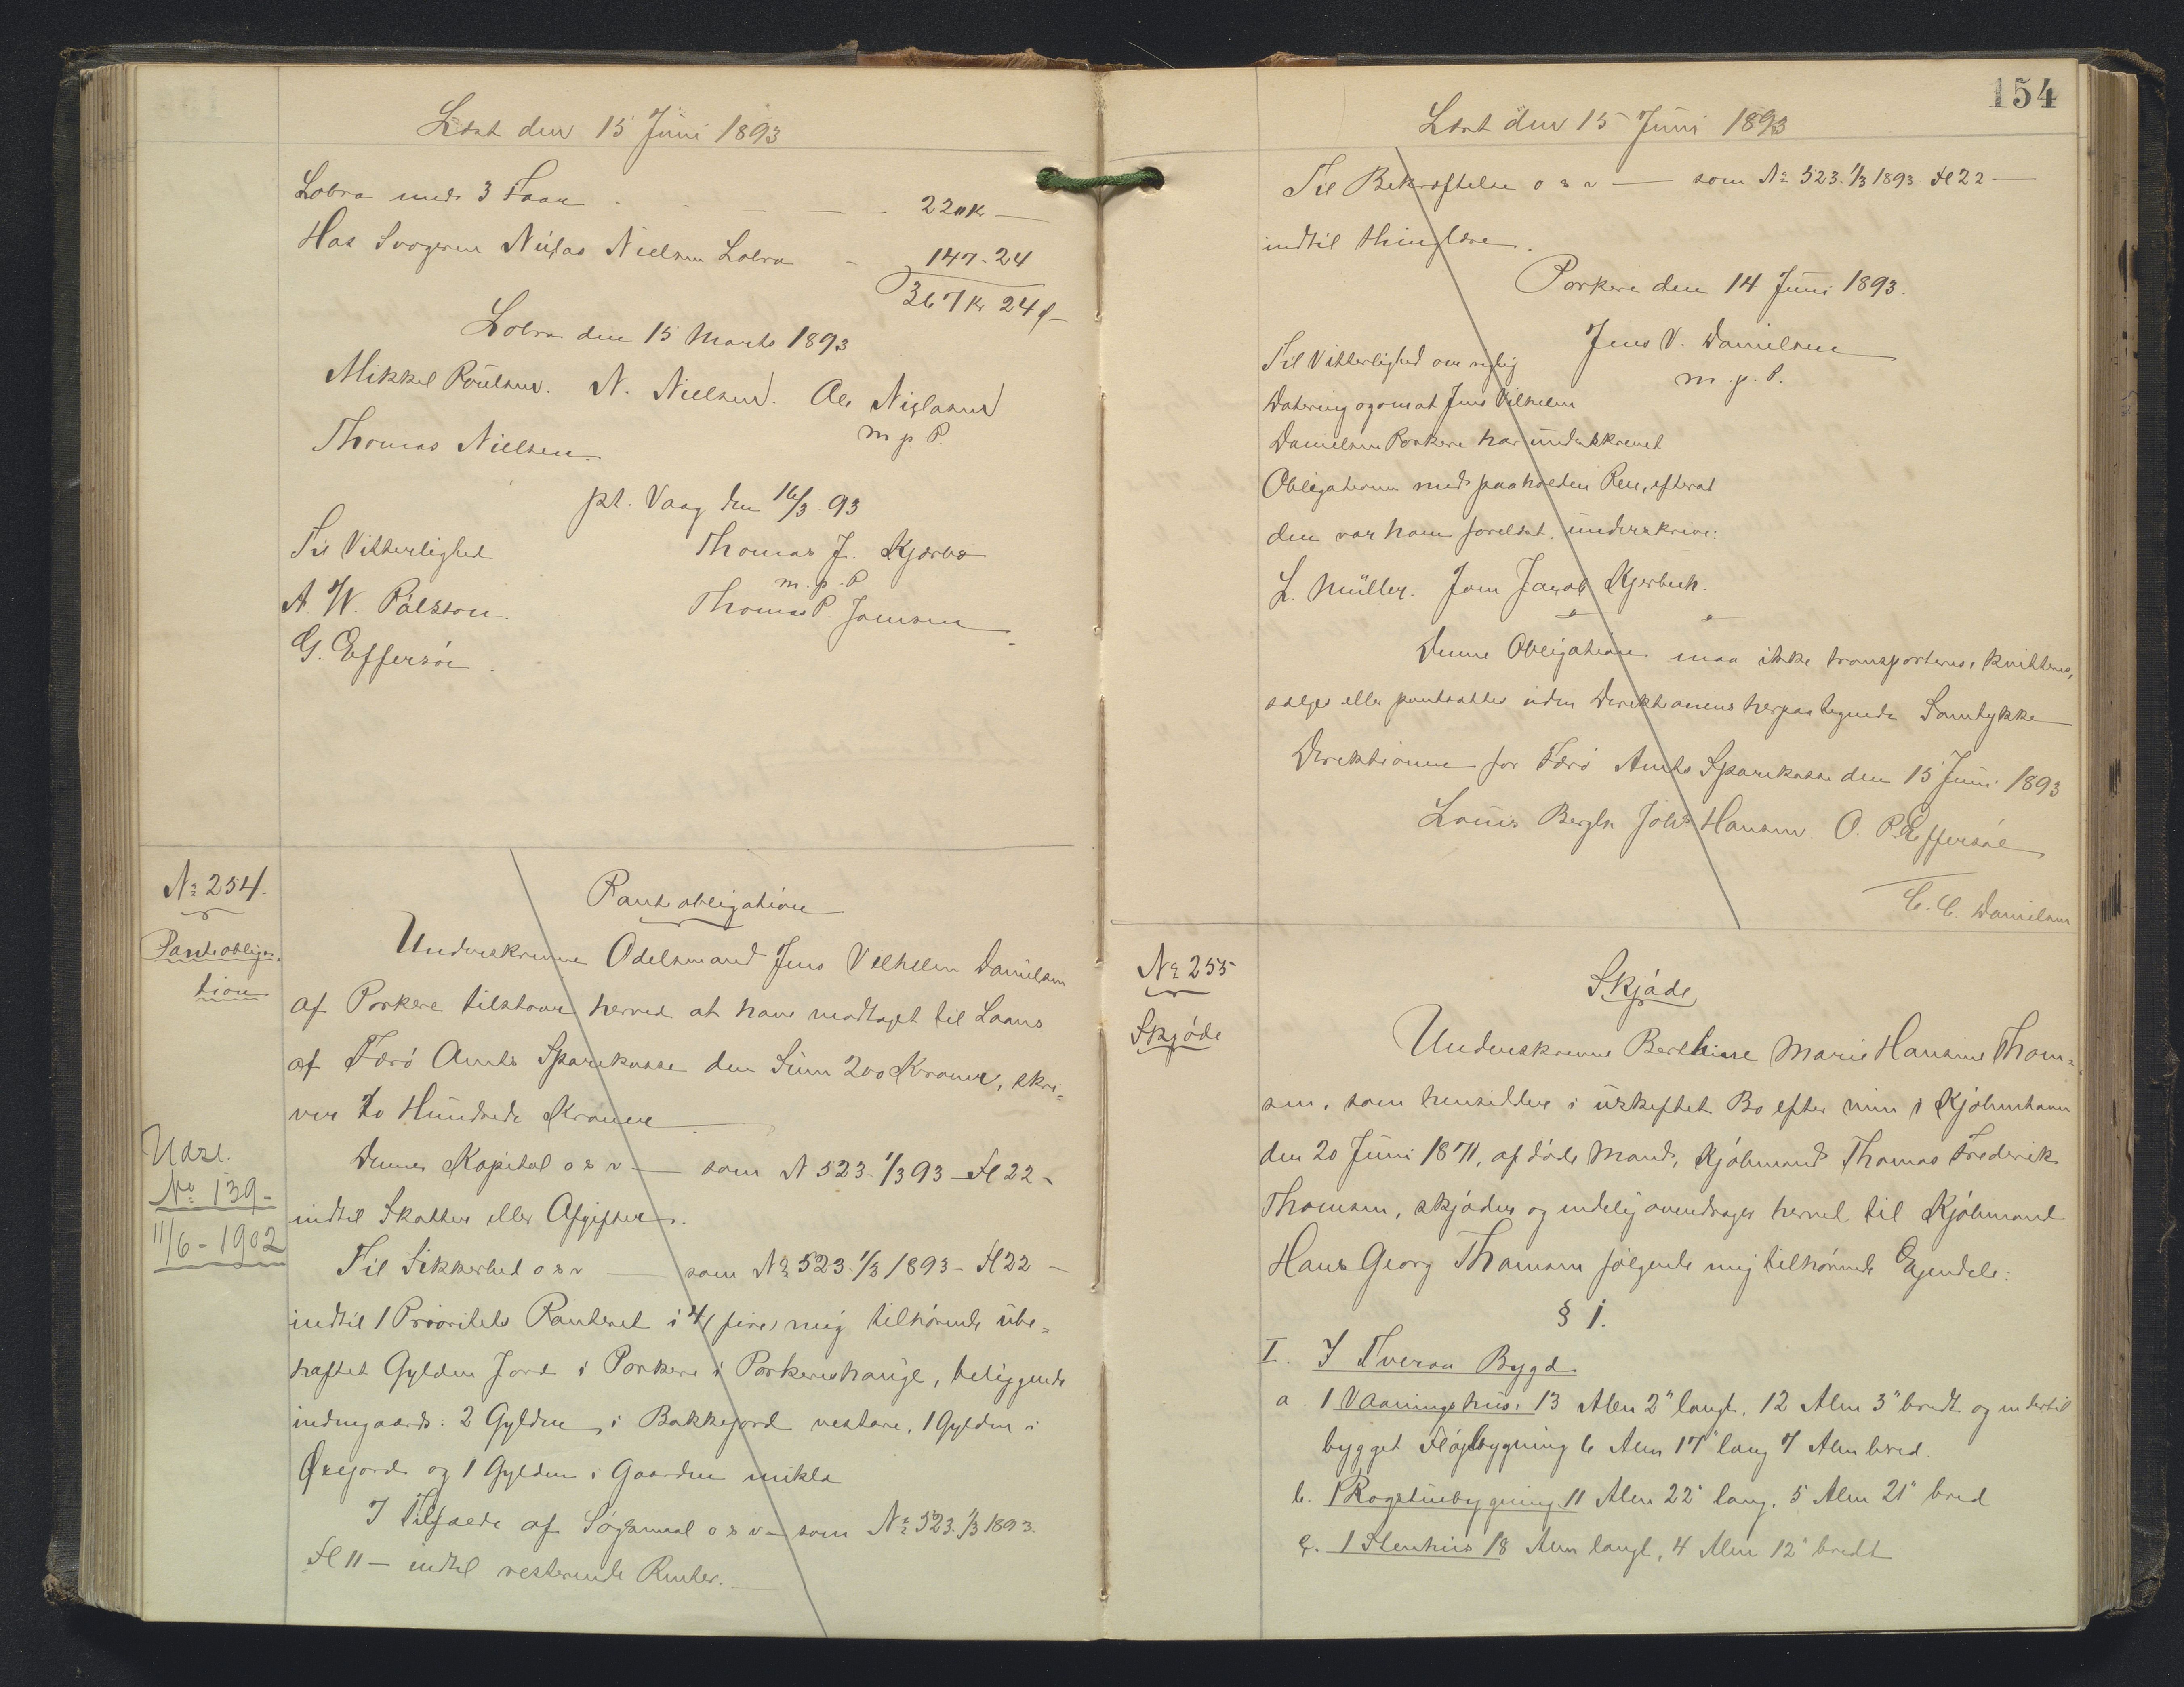 Læst den 15 Juni 1893
Lobra med 3 Faar - - - - - 220 Kr —
Hos Svogeren Niclas Nielsen Lobra - 147-24
367 Kr 24 ø —
Lobra den 15 Marts 1893
Mikkel Poulsen. N. Nielsen. Ole Niclasen
m p P.
Thomas Nielsen.
pt. Vaag den 16/3 93
Til Vitterlighed
Thomas J. Kjærbo
m. p. P
A. W. Pálsson.
Thomas P. Jomsen
G. Effersöe.
No 254.
Panteobliga-
tion
Pantobligation
Underskrevne Odelsmand Jens Vilhelm Danielsen
af Porkere tilstaar herved at have modtaget til Laans
af Færö Amts Sparekasse den Sum 200 Kroner, skri-
ver To Hundrede Kroner
Denne Kapital o s v — som N 523 1/3 93 - Fl 22 -
indtil Skatter eller Afgifter.
Udsl.
No 139-
11/6 - 1902
Til Sikkerhed o s v — som No 523. 1/3 1893 - Fl 22 -
indtil 1 Prioritets Panteret i 4 (fire) mig tilhørende ube-
hæftet Gylden Jord i Porkere i Porkereshauge, beliggende
indengaards: 2 Gylden i Bakkejord vestare, 1 Gylden i
Øregjord og 1 Gylden i Gaarden mikla
I Tilfælde af Søgsmaal o s v — som No 523. 1/3 1893.
Fl 11 — indtil resterende Renter. —
154
Læst den 15 Juni 1893
Til Bekræftelse o s v — som No 523. 1/3 1893 Fl 22 —
indtil thinglæse.
Porkere den 14 Juni 1893.
Jens V. Danielsen
m. p. P.
Til Vitterlighed om rigtig
Datering og om at Jens Vilhelm
Danielsen Porkere har underskrevet
Obligationen med paaholden Pen, efterat
den var ham forelæst, underskrive:
L. Müller. Jom Jacob Kjerbech.
Denne Obligation maa ikke transporteres, kvitteres,
sælges eller pantsættes uden Direktionens herpaa tegnede Samtykke
Direktionen for Færö Amts Sparekasse den 15 Juni 1893
Louis Bergh Johs Hansen. O. P. Effersöe
C. C. Danielsen
No 255
Skjöde
Skjöde
Underskrevne Berthine Marie Hansine Thom-
sen, som hensidder i uskiftet Bo efter min i Kjöbenhavn
den 20 Juni 1871, afdöde Mand, Kjöbmand Thomas Frederik
Thomsen, skjöder og endelig overdrager herved til Kjöbmand
Hans Georg Thomsen følgende mig tilhørende Ejendele:
§ 1.
I. I Tveraa Bygd
a. 1 Vaaningshus: 13 Alen 2" langt, 12 Alen 3" bredt og indertil
bygget Fløjbygning 6 Alen 17" lang 7 Alen bred.
b. 1 Rogstuebygning 11 Alen 22" lang, 5 Alen 21" bred
c. 1 Stenhus 18 Alen langt, 4 Alen 12" bredt